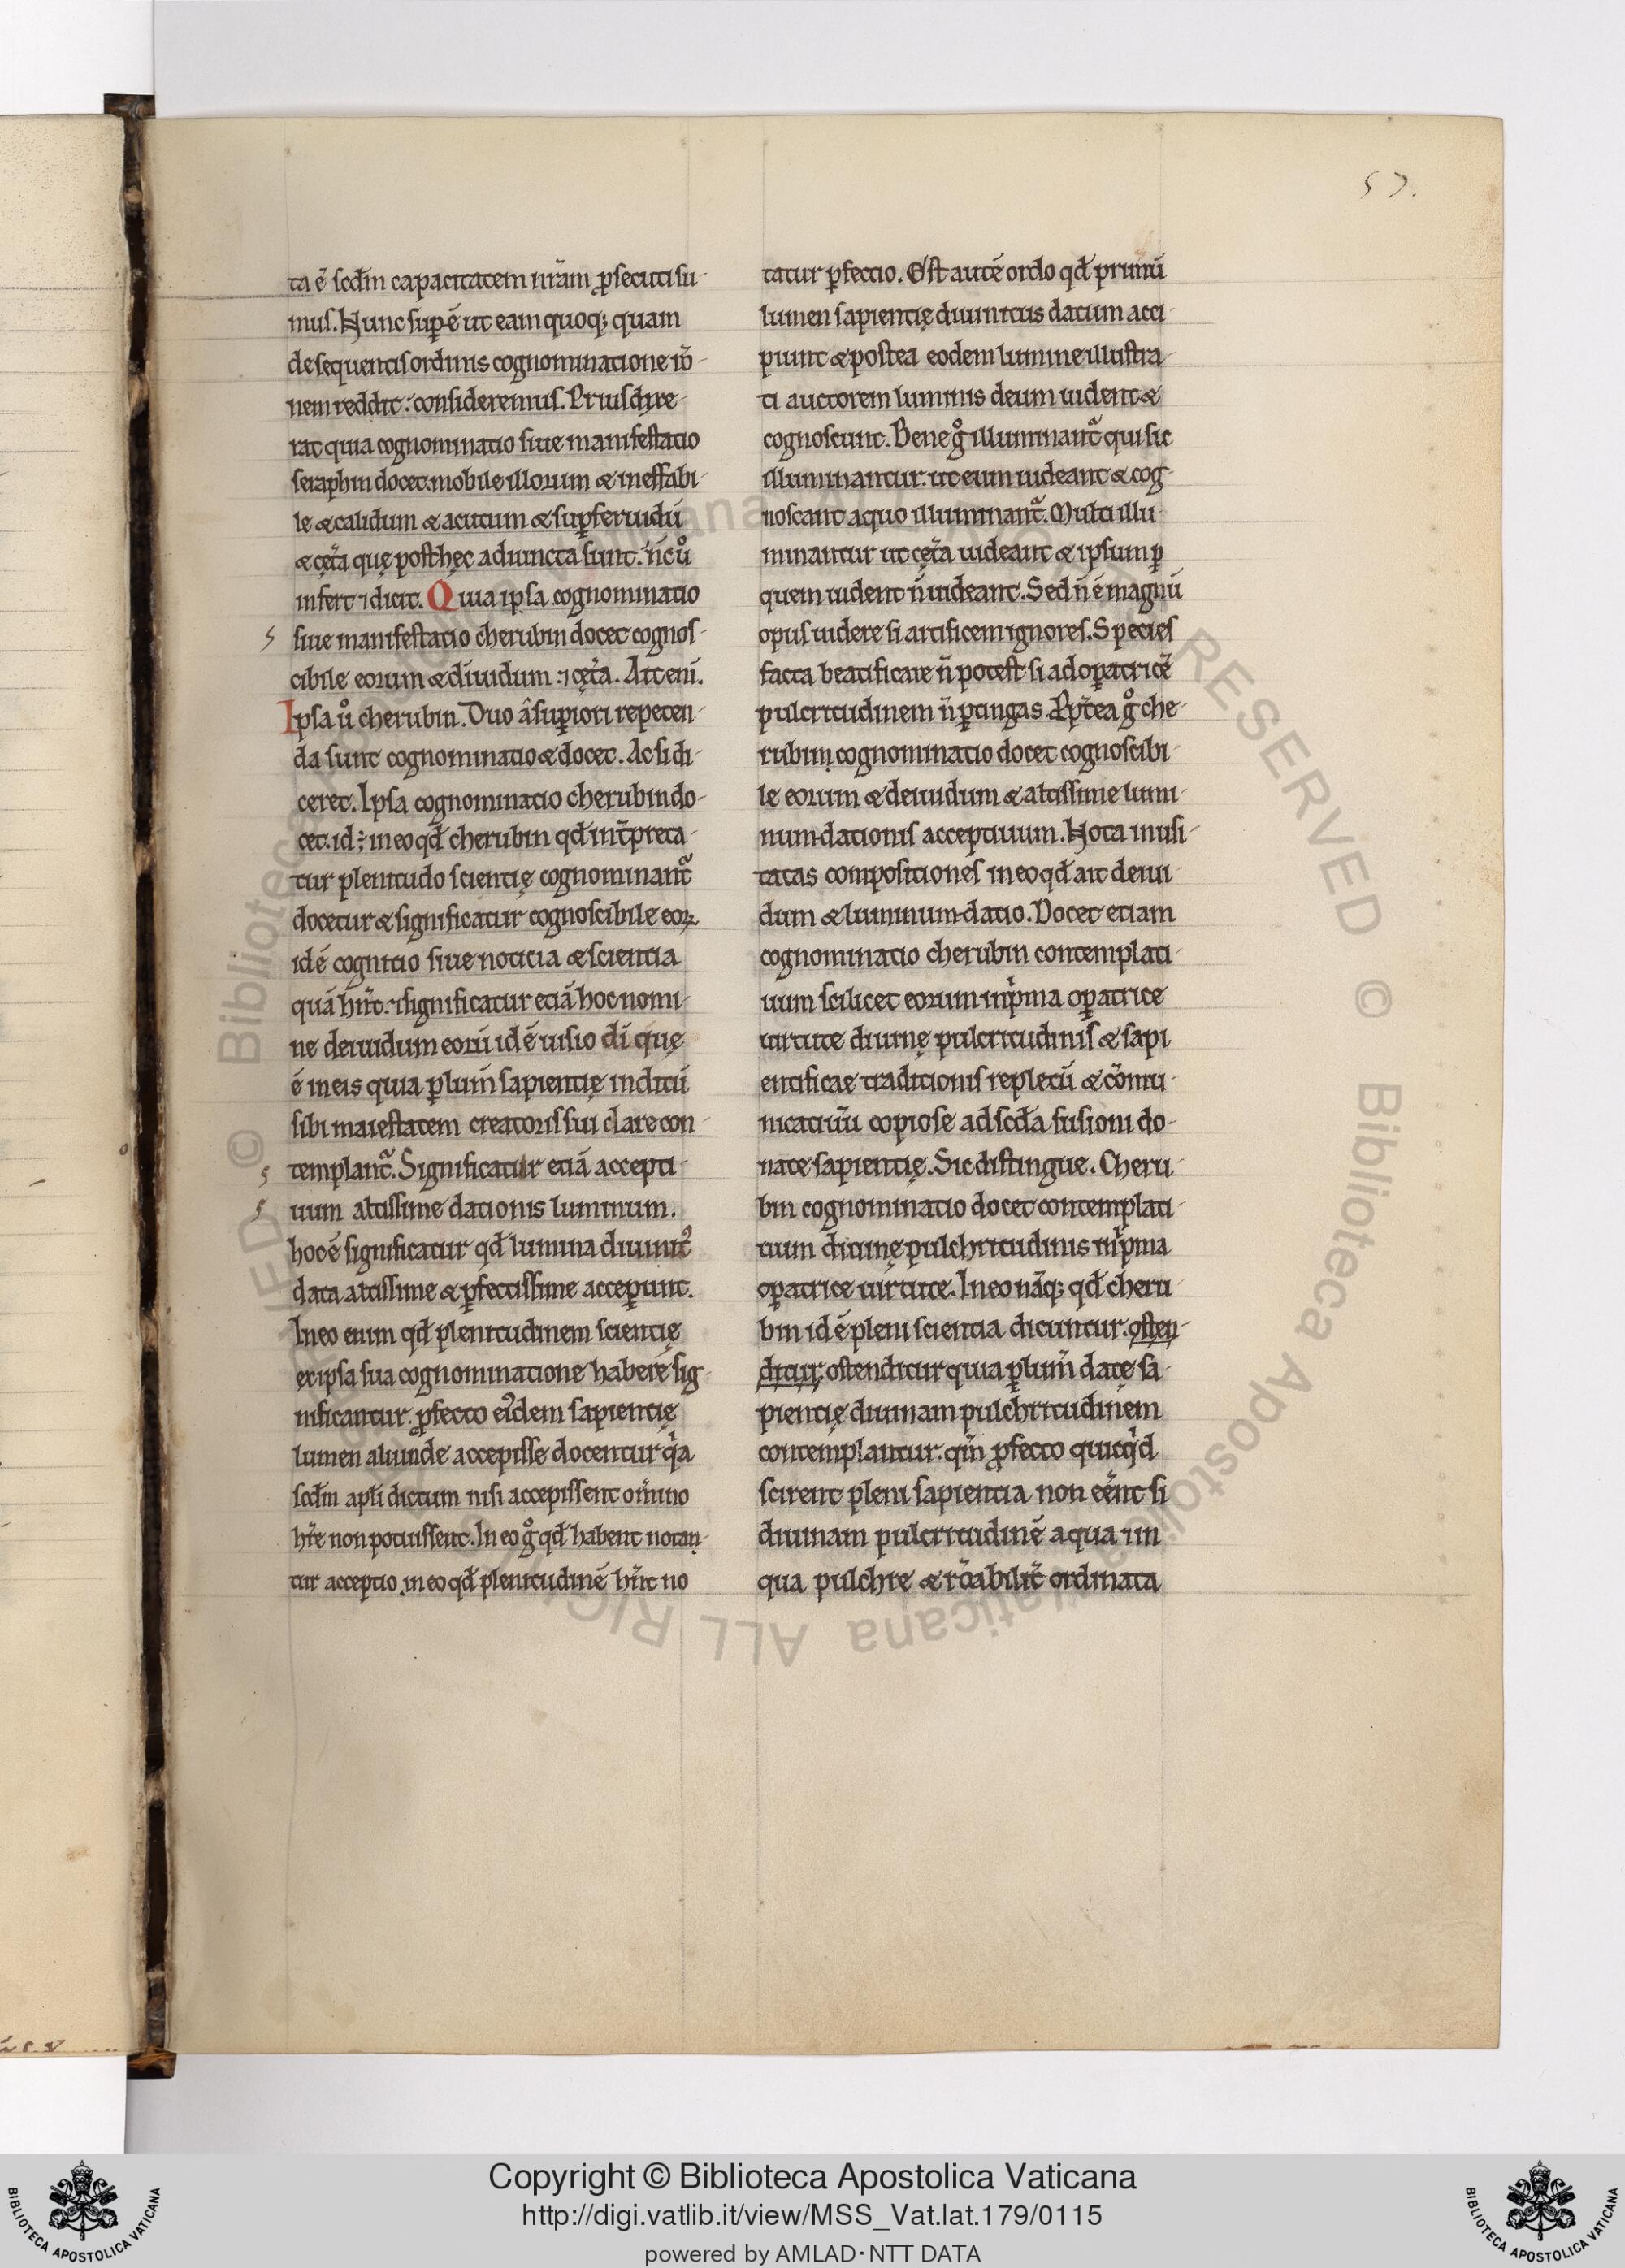 57.
ta ē scd̄m capacitatem nr̄am ꝓsecuti su-
mus. Nunc suꝑ ē ut eam quoq; quam
de sequentis ordinis cognominatione rō-
nem reddit: consideremus. Prius dixe-
rat quia cognominatio siue manifestatio
seraphin docet mobile illorum & ineffabi-
le & calidum & acutum & suꝑferuidū
& cęt̄a quę post hęc adiuncta sunt. n̄c uͦ
infert ⁊ dicit. Quia ipsa cognominatio
siue manifestatio cherubin docet cognos-
cibile eorum & diuidum: ⁊ cęt̄a. At eni.
Ipsa uͦ cherubin. Duo a suꝑiori repeten-
da sunt cognominatio & docet. Ac si di-
ceret. Ipsa cognominatio cherubin do-
cet. id ÷ in eo qđ cherubin qđ int̄preta-
tur plenitudo scientię cognominant᷑
docetur & significatur cognoscibile eoꝝ
id ē cognitio siue noticia & scientia
quā hn̄t. ⁊ significatur etiā hoc nomi-
ne deiuidum eorū id ē uisio dī quę
ē in eis quia ꝑ lum̄ sapientię inditū
sibi maiestatem creatoris sui clare con-
templant᷑. Significatur etiā accepti-
uum altissime dationis luminum.
hoc ē significatur qđ lumina diuinit᷑
data altissime & ꝑfectissime acceꝑunt.
In eo enim qđ plenitudinem scientię
ex ipsa sua cognominatione habere sig-
nificantur. ꝓfecto ei᷒dem sapientię
lumen aliunde accepisse docentur qͥa
scd̄m apl̄i dictum nisi accepissent om̄ino
hr̄e non potuissent. In eo gͦ qđ habent notan-
tur acceptio, in eo qđ plenitudinē hn̄t no
tatur ꝑfectio. Est autē ordo qđ primū
lumen sapientię diuinitus datum acci-
piunt & postea eodem lumine illustra-
ti auctorem luminis deum uident &
cognoscunt. Bene gͦ illuminant᷑ qui sic
illuminantur: ut eum uideant & cog-
noscant a quo illuminant᷑. Multi illu-
minantur ut cęt̄a uideant & ipsum ꝑ
quem uident n̄ uideant. Sed n̄ ē magnū
opus uidere si artificem ignores. Species
facta beatificare n̄ potest si ad oꝑatricē
pulcritudinem n̄ ꝑtingas. Ppt̄ea gͦ che-
rubim cognominatio docet cognoscibi-
le eorum & deiuidum & altissime lumi-
num-dationis acceptiuum. Nota inusi-
tatas compositiones in eo qđ ait deiui-
dum & luminum-datio. Docet etiam
cognominatio cherubin contemplati-
uum scilicet eorum in pͥma oꝑatrice
uirtute diuinę pulcritudinis & sapi
entificae traditionis repletū & cōmu-
nicatiuū copiose ad scd̄a fusioni do-
natę sapientię. Sic distingue. Cheru-
bin cognominatio docet contemplati-
uum diuinę pulchritudinis in pͥma
oꝑatrice uirtute. In eo nāq; qđ cheru-
bin id ē pleni scientia dicuntur. osten-
ditur, ostenditur quia ꝑ lum̄ datę sa-
pientię diuinam pulchritudinem
contemplantur. qm̄ ꝓfecto quicqͥd
scirent pleni sapientia non eēnt si
diuinam pulcritudinē a qua ⁊ in
qua pulchre & rōabilit᷑ ordinata
Copyright © Biblioteca Apostolica Vaticana
http://digi.vatlib.it/view/MSS_Vat.lat.179/0115
powered by AMLAD·NTT DATA
BIBLIOTECA APOSTOLICA VATICANA
BIBLIOTECA APOSTOLICA VATICANA